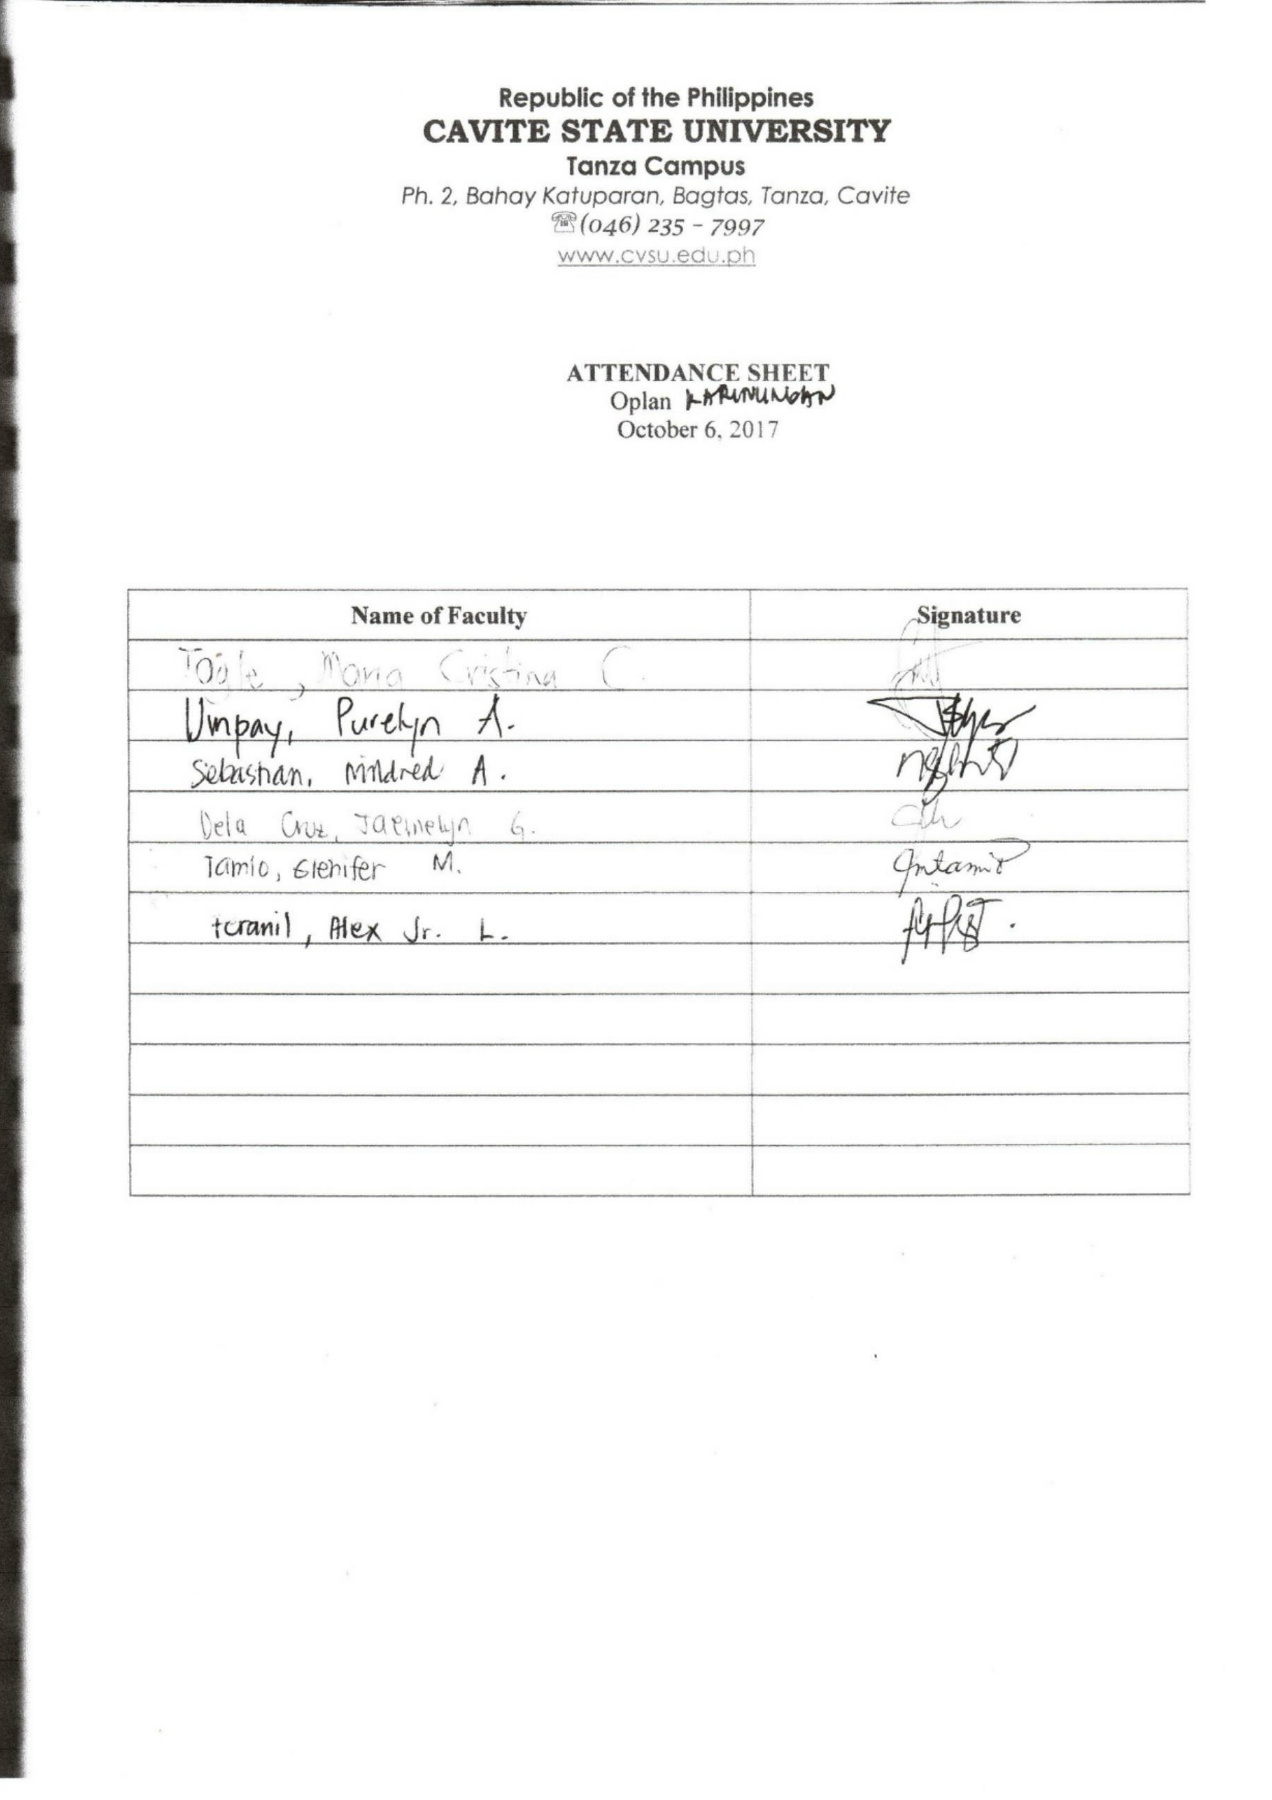 Republic of the Philippines
CAVITE STATE UNIVERSITY
Tanza Campus
Ph. 2, Bahay Katuparan, Bagtas, Tanza, Cavite
☎(046) 235 - 7997
www.cvsu.edu.ph
ATTENDANCE SHEET
Oplan KARUNUNGAN
October 6, 2017
Name of Faculty Signature
Tagle, Maria Cristina C.
Umpay, Purelyn A.
Sebastian, Mildred A.
Dela Cruz, Jaermelyn G.
Tamio, Glenifer M.
Alex Jr. L.